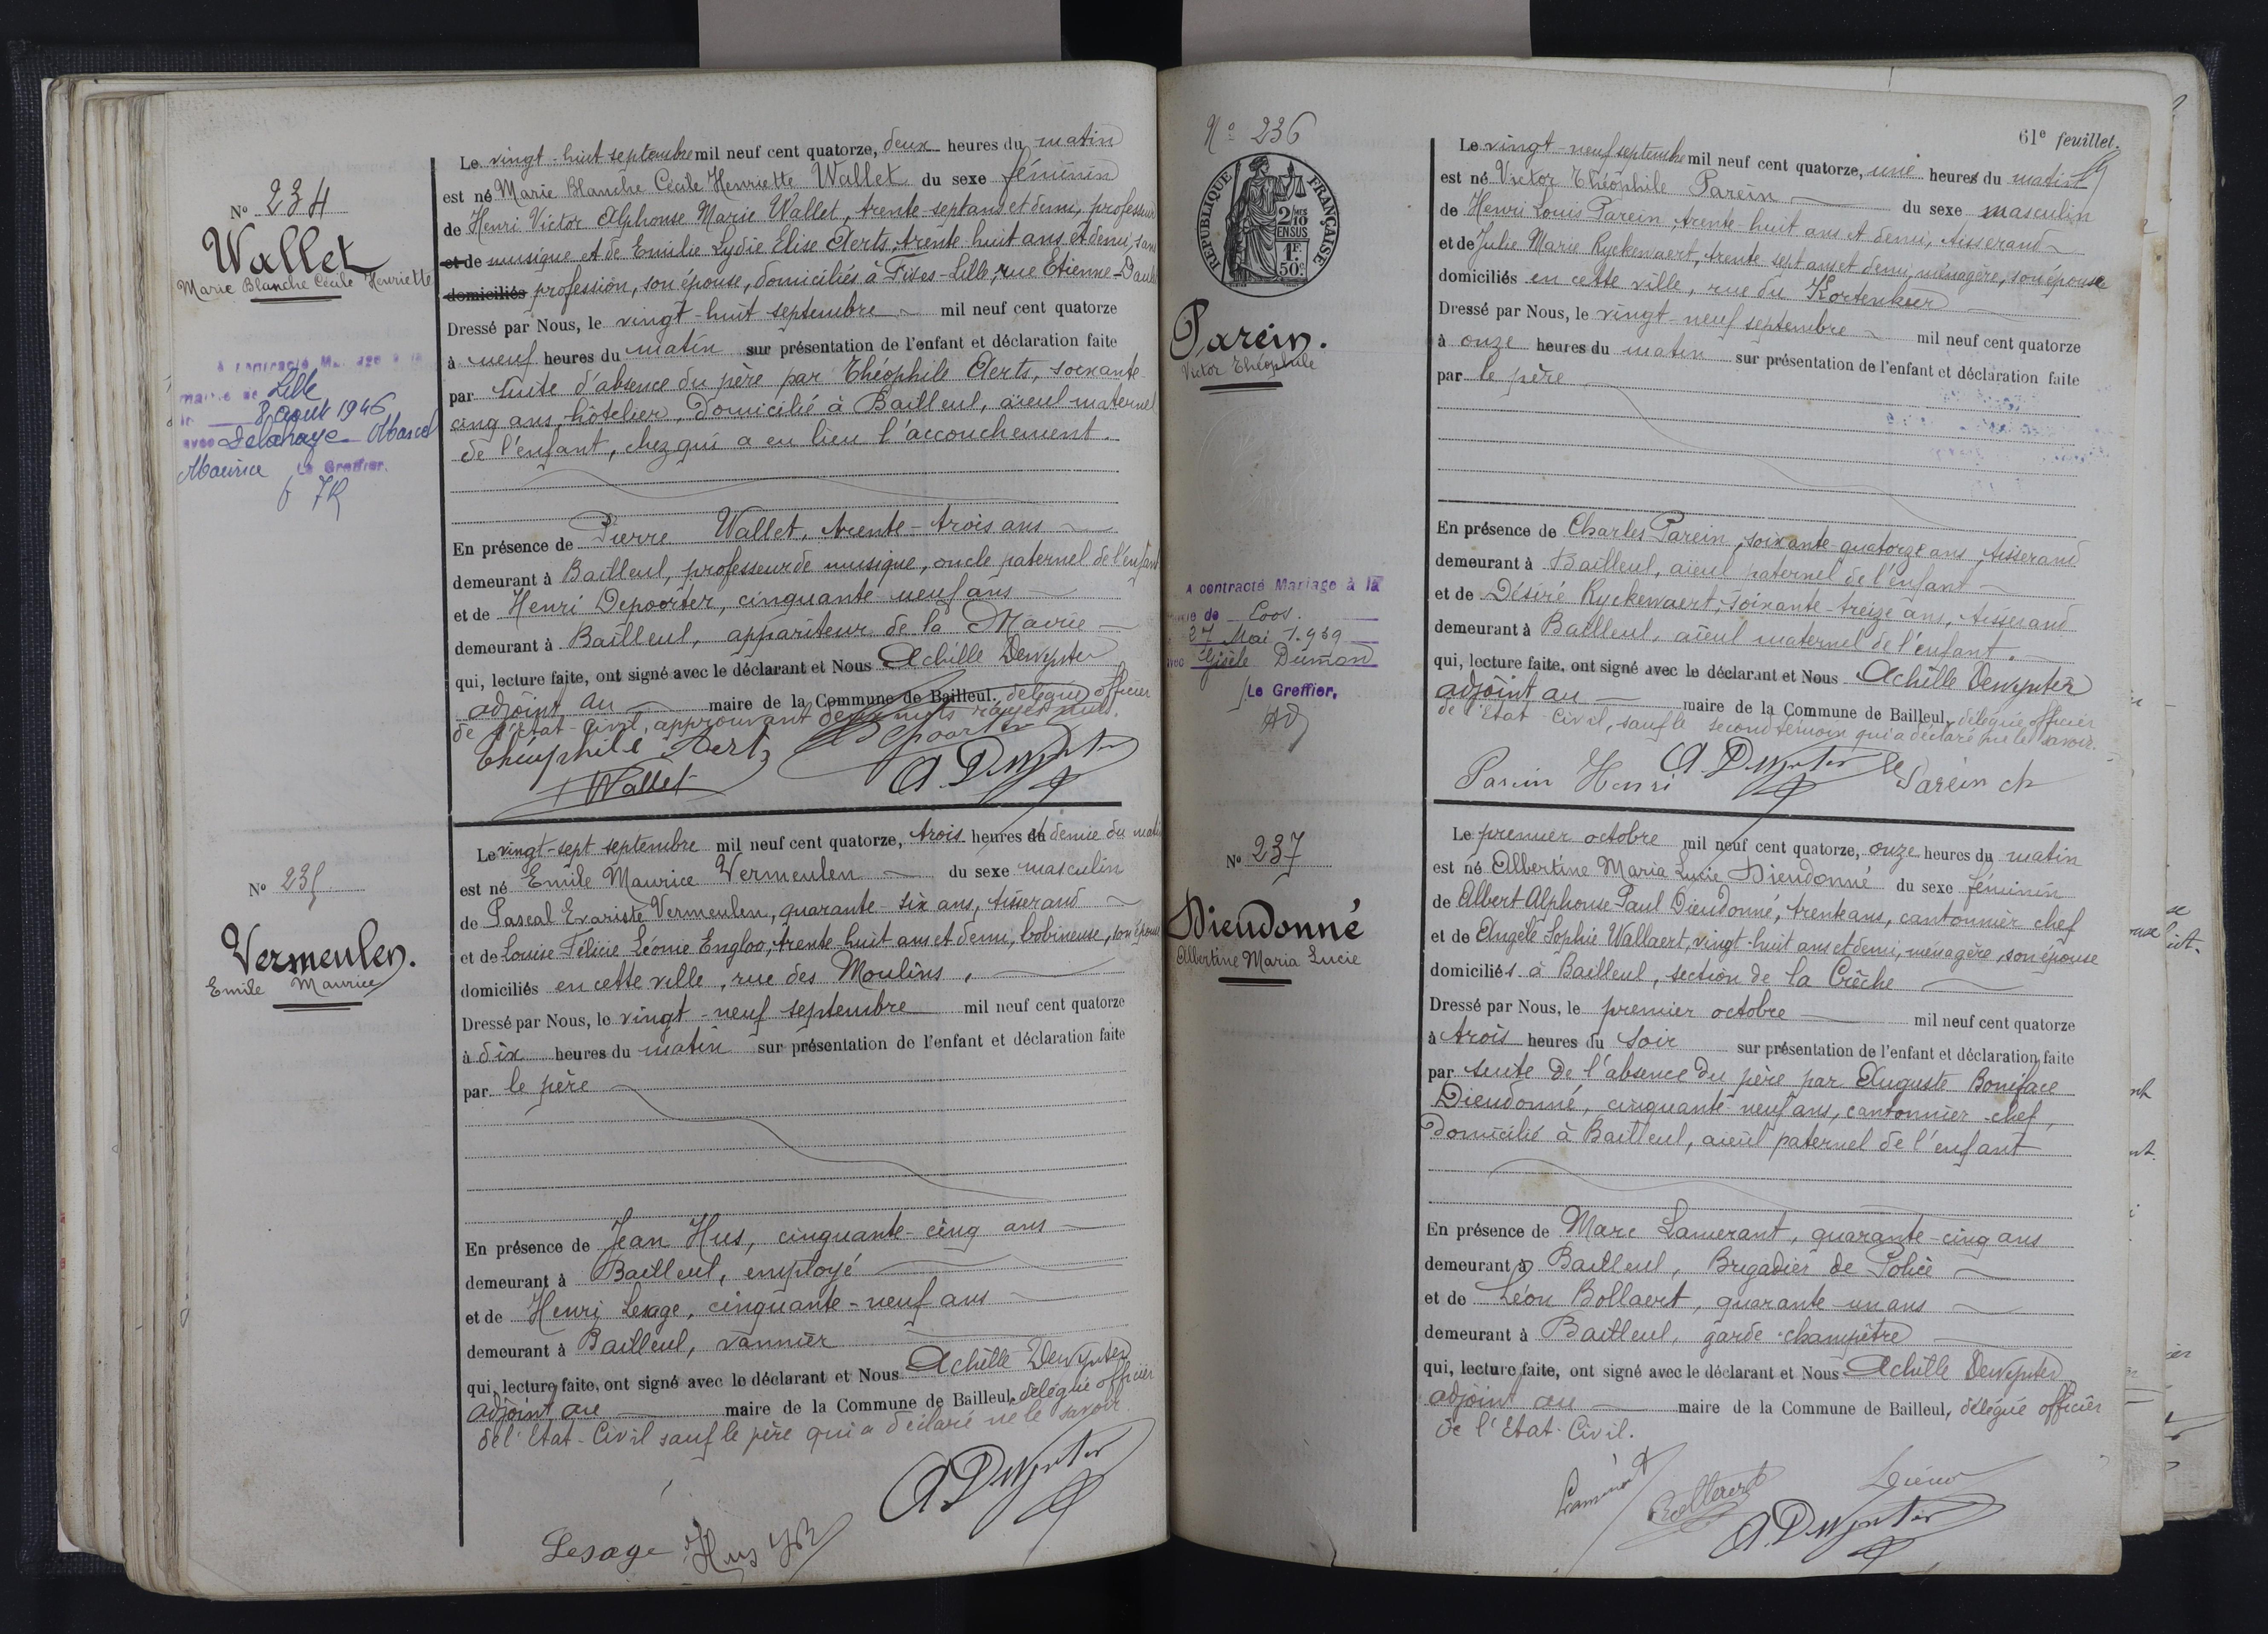 No 234
Wallet
Marie Blanche Cécile Henriette
A contracté Mariage à la
mairie de Lille
le 8 août 1946
avec Delahaye Marcel
Maurice Le Greffier.
Le vingt-huit septembre mil neuf cent quatorze, deux heures du matin
est né Marie Blanche Cécile Henriette Wallet du sexe féminin
de Henri Victor Alphonse Marie Wallet, trente-sept ans et demi, professeur
et de musique et de Emilie Lydie Elise Aerts, trente-huit ans et demi, sans
domiciliés profession, son épouse, domiciliés à Fives-Lille, rue Etienne-
Dressé par Nous, le vingt-huit septembre mil neuf cent quatorze
à neuf heures du matin sur présentation de l'enfant et déclaration faite
par suite d'absence du père par Théophile Aerts, soixante
cinq ans, hôtelier, domicilié à Bailleul, aïeul maternel
de l'enfant, chez qui a eu lieu l'accouchement.
En présence de Pierre Wallet, trente-trois ans
demeurant à Bailleul, professeur de musique, oncle paternel de l'enfant
et de Henri Depoorter, cinquante neuf ans
demeurant à Bailleul, appariteur de la Mairie
qui, lecture faite, ont signé avec le déclarant et Nous Achille Dewynter
adjoint au maire de la Commune de Bailleul, délégué officier
de l'Etat-Civil, approuvant deux mots rayés nuls.
Théophile Aerts Depoorter
Wallet A. Dewynter
No 235
Vermeulen.
Emile Maurice
Le vingt-sept septembre mil neuf cent quatorze, trois heures et demie du matin
est né Emile Maurice Vermeulen du sexe masculin
de Pascal Evariste Vermeulen, quarante-six ans, tisserand
et de Louise Félicie Léonie Engloo, trente-huit ans et demi, bobineuse, son épouse
domiciliés en cette ville, rue des Moulins,
Dressé par Nous, le vingt-neuf septembre mil neuf cent quatorze
à dix heures du matin sur présentation de l'enfant et déclaration faite
par le père
En présence de Jean Hus, cinquante-cinq ans
demeurant à Bailleul, employé
et de Henri Lesage, cinquante-neuf ans
demeurant à Bailleul, vannier
qui, lecture faite, ont signé avec le déclarant et Nous Achille Dewynter
adjoint au maire de la Commune de Bailleul, délégué officier
de l'Etat-Civil sauf le père qui a déclaré ne le savoir
A. Dewynter
Lesage Hus
61e feuillet.
No 236
RÉPUBLIQUE FRANÇAISE
2/10 MES
EN SUS
1F.
50c
Parein.
Victor Théophile
A contracté Mariage à la
mairie de Loos
27 Mai 1939
avec Gisèle Dumon
Le Greffier,
Le vingt-neuf septembre mil neuf cent quatorze, une heures du matin
est né Victor Théophile Parein du sexe masculin
de Henri Louis Parein, trente-huit ans et demi, tisserand
et de Julie Marie Ryckewaert, trente sept ans et demi, ménagère, son épouse
domiciliés en cette ville, rue du Kortenkeer
Dressé par Nous, le vingt-neuf septembre mil neuf cent quatorze
à onze heures du matin sur présentation de l'enfant et déclaration faite
par le père
En présence de Charles Parein, soixante-quatorze ans, tisserand
demeurant à Bailleul, aïeul paternel de l'enfant
et de Désiré Ryckewaert, soixante-treize ans, tisserand
demeurant à Bailleul, aïeul maternel de l'enfant.
qui, lecture faite, ont signé avec le déclarant et Nous Achille Dewynter
adjoint au maire de la Commune de Bailleul, délégué officier
de l'Etat-Civil, sauf le second témoin qui a déclaré ne le savoir.
Parein Henri A. Dewynter Parein ch
No 237
Dieudonné
Albertine Maria Lucie
Le premier octobre mil neuf cent quatorze, onze heures du matin
est né Albertine Maria Lucie Dieudonné du sexe féminin
de Albert Alphonse Paul Dieudonné, trente ans, cantonnier chef
et de Angèle Sophie Wallaert, vingt-huit ans et demi, ménagère, son épouse
domiciliés à Bailleul, section de la Crèche
Dressé par Nous, le premier octobre mil neuf cent quatorze
à trois heures du soir sur présentation de l'enfant et déclaration faite
par suite de l'absence du père par Auguste Boniface
Dieudonné, cinquante-neuf ans, cantonnier-chef,
domicilié à Bailleul, aïeul paternel de l'enfant
En présence de Marc Lamerant, quarante-cinq ans
demeurant à Bailleul, Brigadier de Police
et de Léon Bollaert, quarante-un ans
demeurant à Bailleul, garde-champêtre
qui, lecture faite, ont signé avec le déclarant et Nous Achille Dewynter
adjoint au maire de la Commune de Bailleul, délégué officier
de l'Etat-Civil.
Bollaert
A. Dewynter